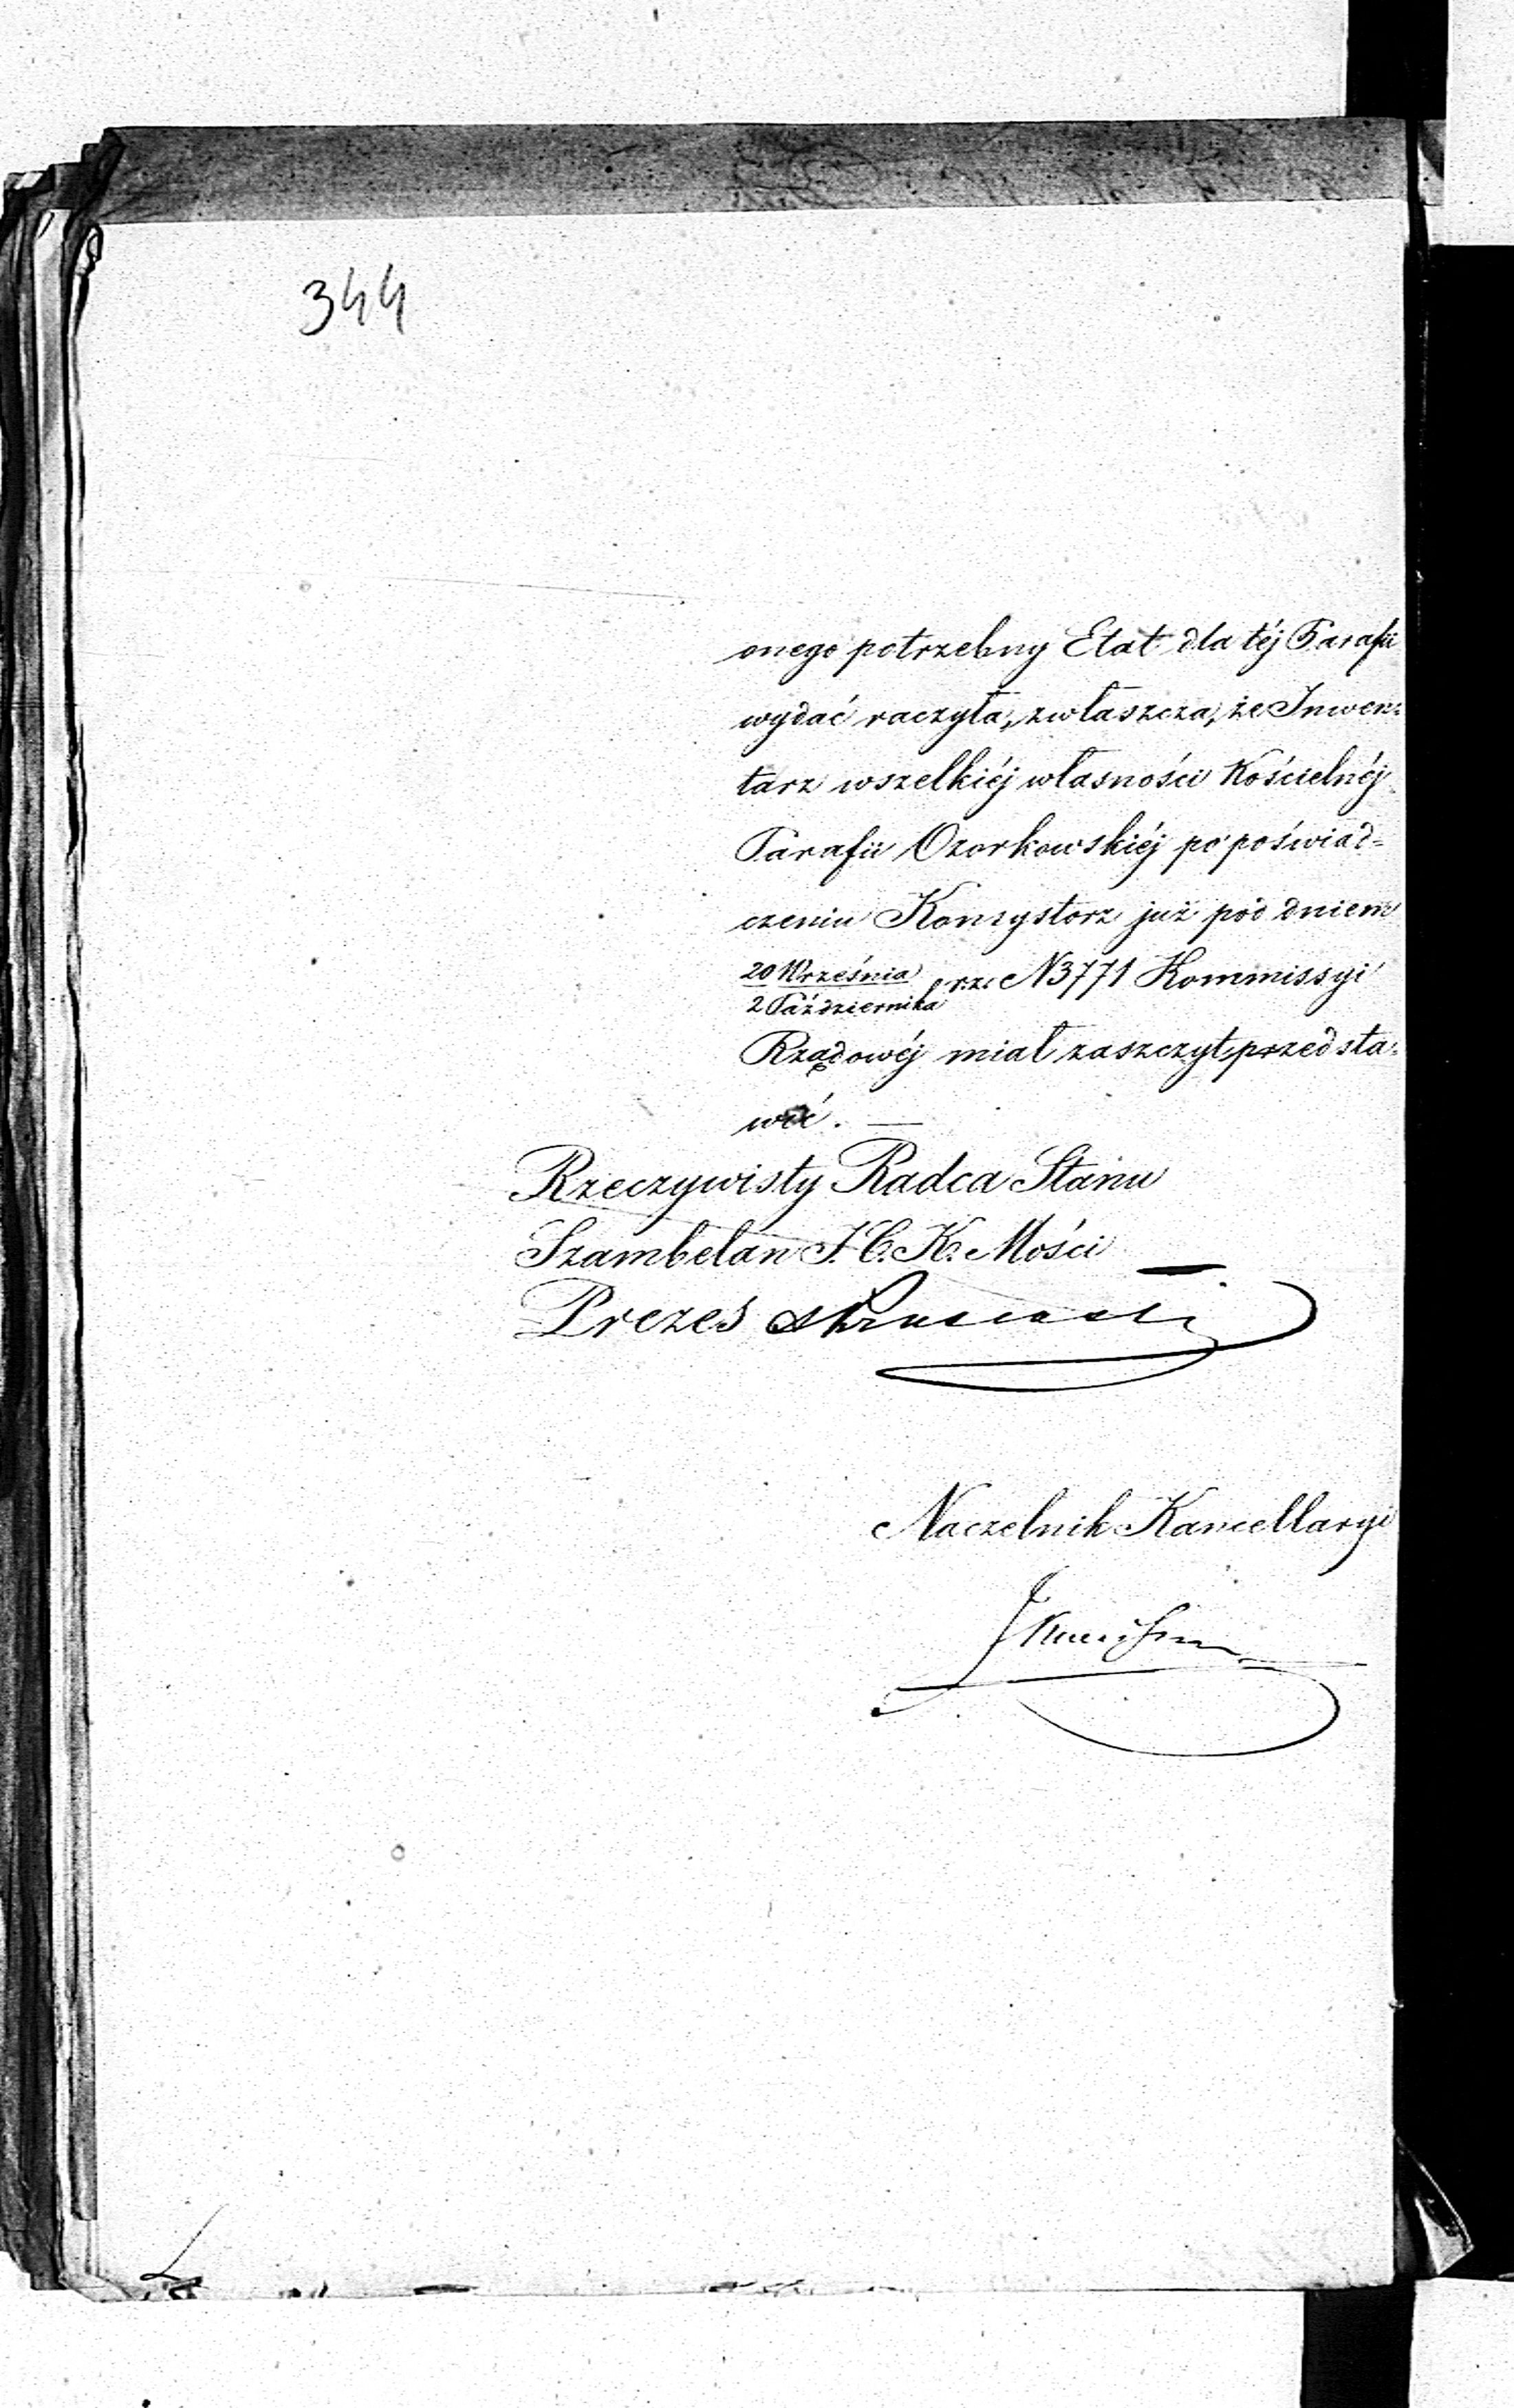 344
onego potrzebny Etat dla téj Parafii
wydać raczyła, zwłaszcza, że Inwen=
tarz wszelkiéj własności Kościelnéj
Parafii Ozorkowskiéj po poświad=
czeniu Konsystorz już pod dniem
20 Września
2 Października
r.z. N 3771 Kommissyi
Rządowéj miał zaszczyt przedsta=
wić. —
Rzeczywisty Radca Stanu
Szambelan J. C. K. Mości
Prezes
Naczelnik Kancellaryi